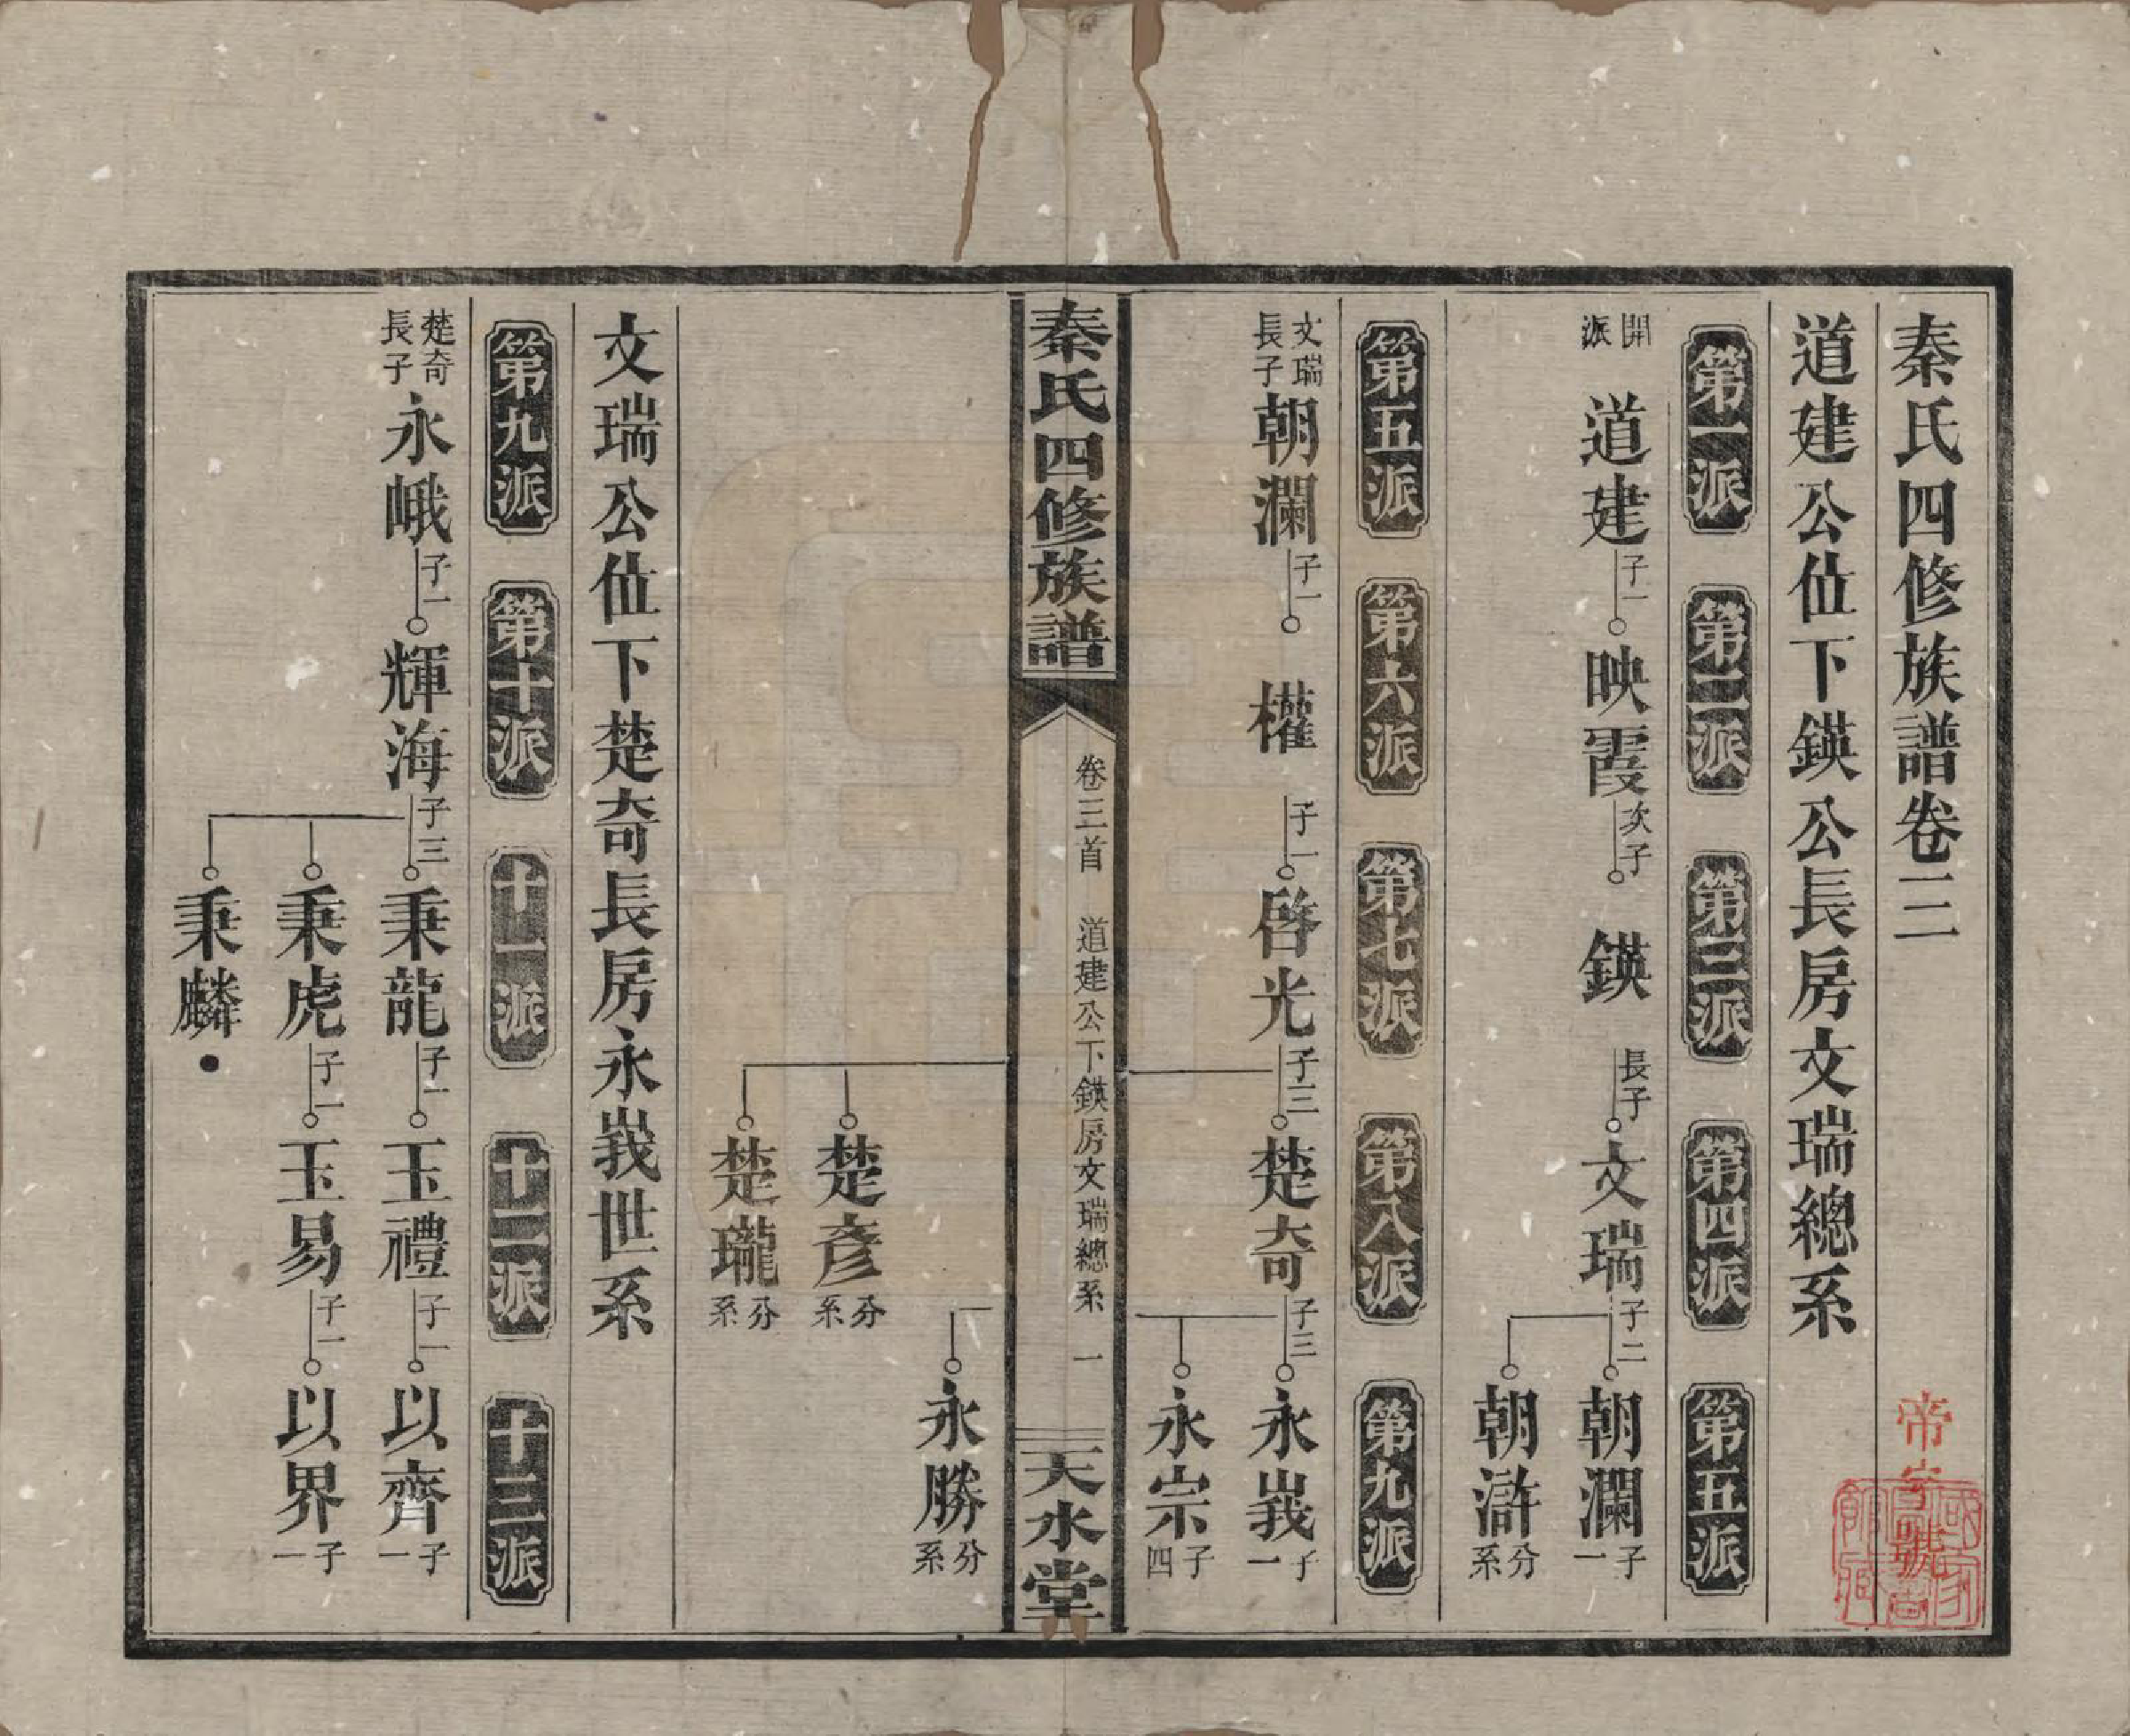 秦氏四修族譜卷三
道建公位下鍈公長房文瑞總系
第一派 第二派 第三派 第四派 第五派
開派 道建 子一 映霞 次子 鍈 長子 文瑞 子二 朝瀾 子一
朝滸 分系
第五派 第六派 第七派 第八派 第九派
文瑞長子 朝瀾 子一 權 子一 啓光 子三 楚奇 子三 永峩 子一
永宗 子四
秦氏四修族譜 卷三首 道建公下鍈房文瑞總系 一 天水堂
永勝 分系
楚彥 分系
楚瓏 分系
文瑞公位下楚奇長房永峩世系
第九派 第十派 十一派 十二派 十三派
楚奇長子 永峨 子一 輝海 子三 秉龍 子一 玉禮 子一 以齊 子一
秉虎 子一 玉易 子一 以界 子一
秉麟
帝字號